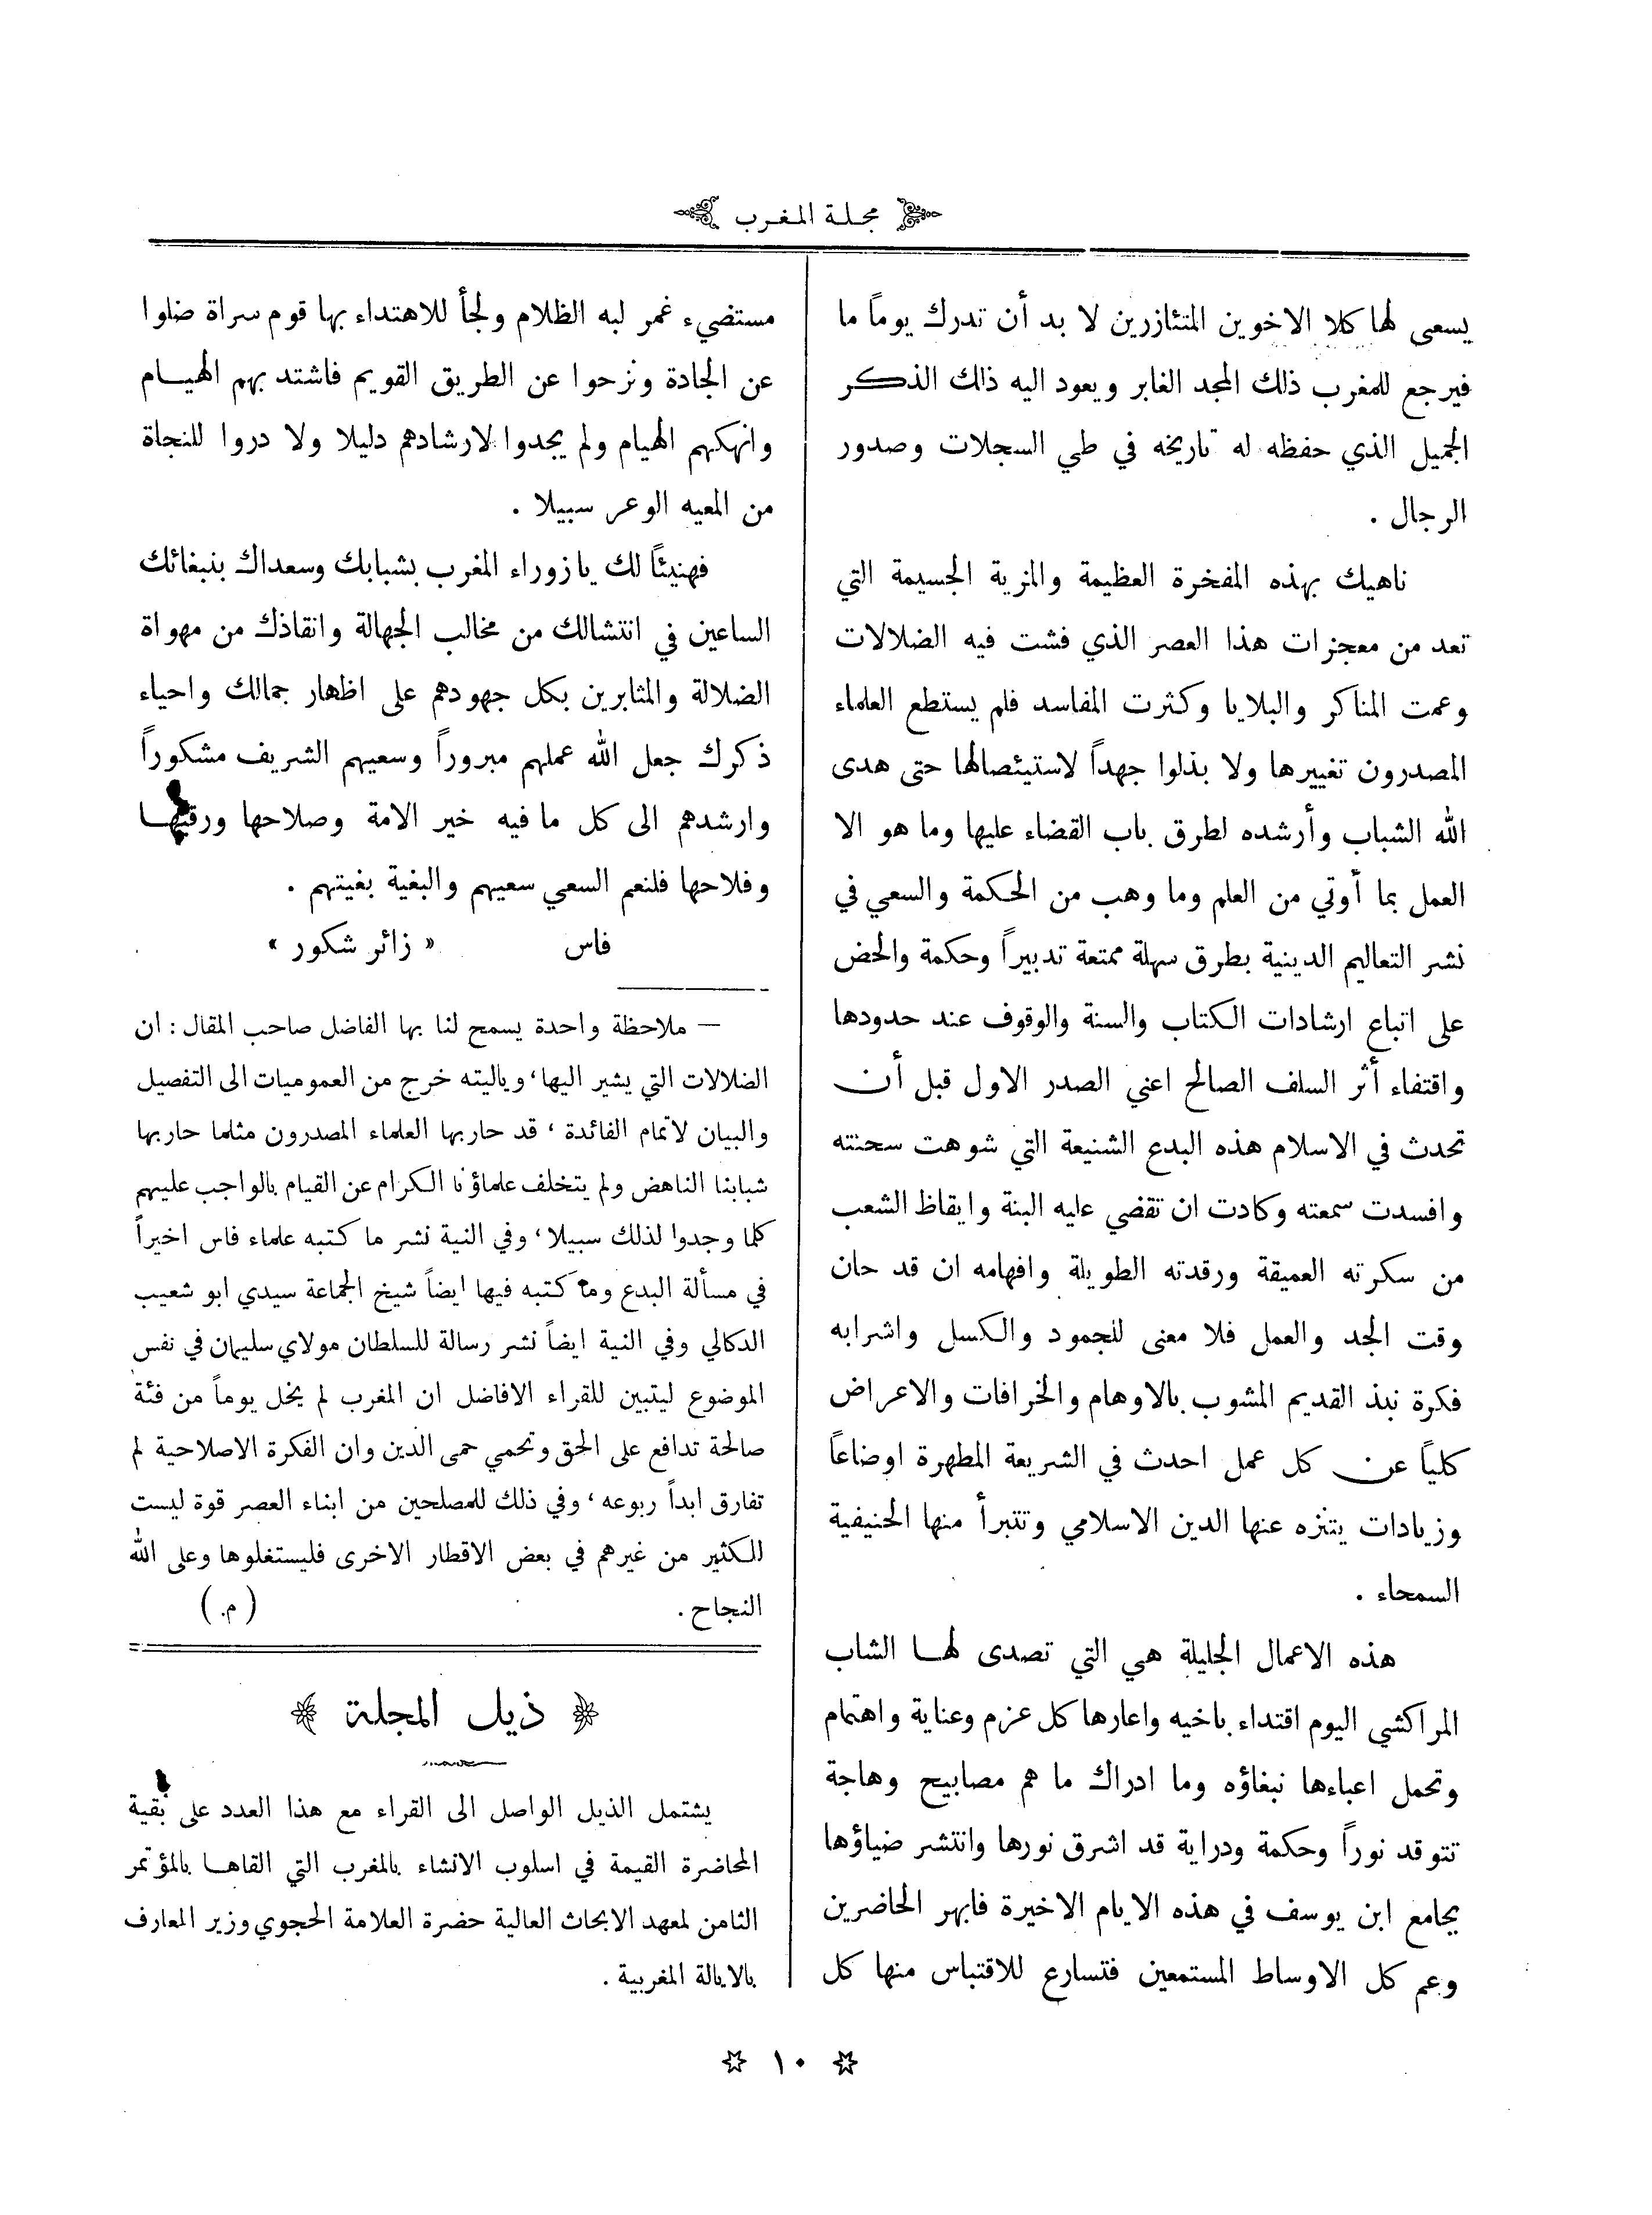 مجلة المغرب
يسعى لها كلا الاخوين المتئازرين لا بد أن تدرك يوماً ما
فيرجع للمغرب ذلك المجد الغابر ويعود اليه ذاك الذكر
الجميل الذي حفظه له تاريخه في طي السجلات وصدور
الرجال .
ناهيك بهذه المفخرة العظيمة والمزية الجسيمة التي
تعد من معجزات هذا العصر الذي فشت فيه الضلالات
وعمت المناكر والبلايا وكثرت المفاسد فلم يستطع العلماء
المصدرون تغييرها ولا بذلوا جهداً لاستيئصالها حتى هدى
الله الشباب وأرشده لطرق باب القضاء عليها وما هو الا
العمل بما أوتي من العلم وما وهب من الحكمة والسعي في
نشر التعاليم الدينية بطرق سهلة ممتعة تدبيراً وحكمة والحض
على اتباع ارشادات الكتاب والسنة والوقوف عند حدودها
واقتفاء أثر السلف الصالح اعني الصدر الاول قبل أن
تحدث في الاسلام هذه البدع الشنيعة التي شوهت سحنته
وافسدت سمعته وكادت ان تقضي عليه البنة وايقاظ الشعب
من سكرته العميقة ورقدته الطويلة وافهامه ان قد حان
وقت الجد والعمل فلا معنى للجمود والكسل واشرابه
فكرة نبذ القديم المشوب بالاوهام والخرافات والاعراض
كلياً عن كل عمل احدث في الشريعة المطهرة اوضاعاً
وزيادات يتنزه عنها الدين الاسلامي وتتبرأ منها الحنيفية
السمحاء .
هذه الاعمال الجليلة هي التي تصدى لها الشاب
المراكشي اليوم اقتداء باخيه واعارها كل عزم وعناية واهتمام
وتحمل اعباءها نبغاؤه وما ادراك ما هم مصابيح وهاجة
تتوقد نوراً وحكمة ودراية قد اشرق نورها وانتشر ضياؤها
بجامع ابن يوسف في هذه الايام الاخيرة فابهر الحاضرين
وعم كل الاوساط المستمعين فتسارع للاقتباس منها كل
مستضيء غمر لبه الظلام ولجأ للاهتداء بها قوم سراة ضلوا
عن الجادة ونزحوا عن الطريق القويم فاشتد بهم الهيام
وانهكهم الهيام ولم يجدوا لارشادهم دليلا ولا دروا للنجاة
من المعيه الوعر سبيلا .
فهنيئاً لك يا زوراء المغرب بشبابك وسعداك بنبغائك
الساعين في انتشالك من مخالب الجهالة وانقاذك من مهواة
الضلالة والمثابرين بكل جهودهم على اظهار جمالك واحياء
ذكرك جعل الله عملهم مبروراً وسعيهم الشريف مشكوراً
وارشدهم الى كل ما فيه خير الامة وصلاحها ورقيها
وفلاحها فلنعم السعي سعيهم والبغية بغيتهم .
فاس « زائر شكور »
— ملاحظة واحدة يسمح لنا بها الفاضل صاحب المقال : ان
الضلالات التي يشير اليها، وياليته خرج من العموميات الى التفصيل
والبيان لاتمام الفائدة ، قد حاربها العلماء المصدرون مثلما حاربها
شبابنا الناهض ولم يتخلف علماؤنا الكرام عن القيام بالواجب عليهم
كلما وجدوا لذلك سبيلا ، وفي النية نشر ما كتبه علماء فاس اخيراً
في مسألة البدع وما كتبه فيها ايضاً شيخ الجماعة سيدي ابو شعيب
الدكالي وفي النية ايضاً نشر رسالة للسلطان مولاي سليمان في نفس
الموضوع ليتبين للقراء الافاضل ان المغرب لم يخل يوماً من فئة
صالحة تدافع على الحق وتحمي حمى الدين وان الفكرة الاصلاحية لم
تفارق ابداً ربوعه ، وفي ذلك للمصلحين من ابناء العصر قوة ليست
للكثير من غيرهم في بعض الاقطار الاخرى فليستغلوها وعلى الله
النجاح . (م.)
ذيل المجلة
يشتمل الذيل الواصل الى القراء مع هذا العدد على بقية
المحاضرة القيمة في اسلوب الانشاء بالمغرب التي القاها بالمؤتمر
الثامن لمعهد الابحاث العالية حضرة العلامة الحجوي وزير المعارف
بالايالة المغربية .
١٠